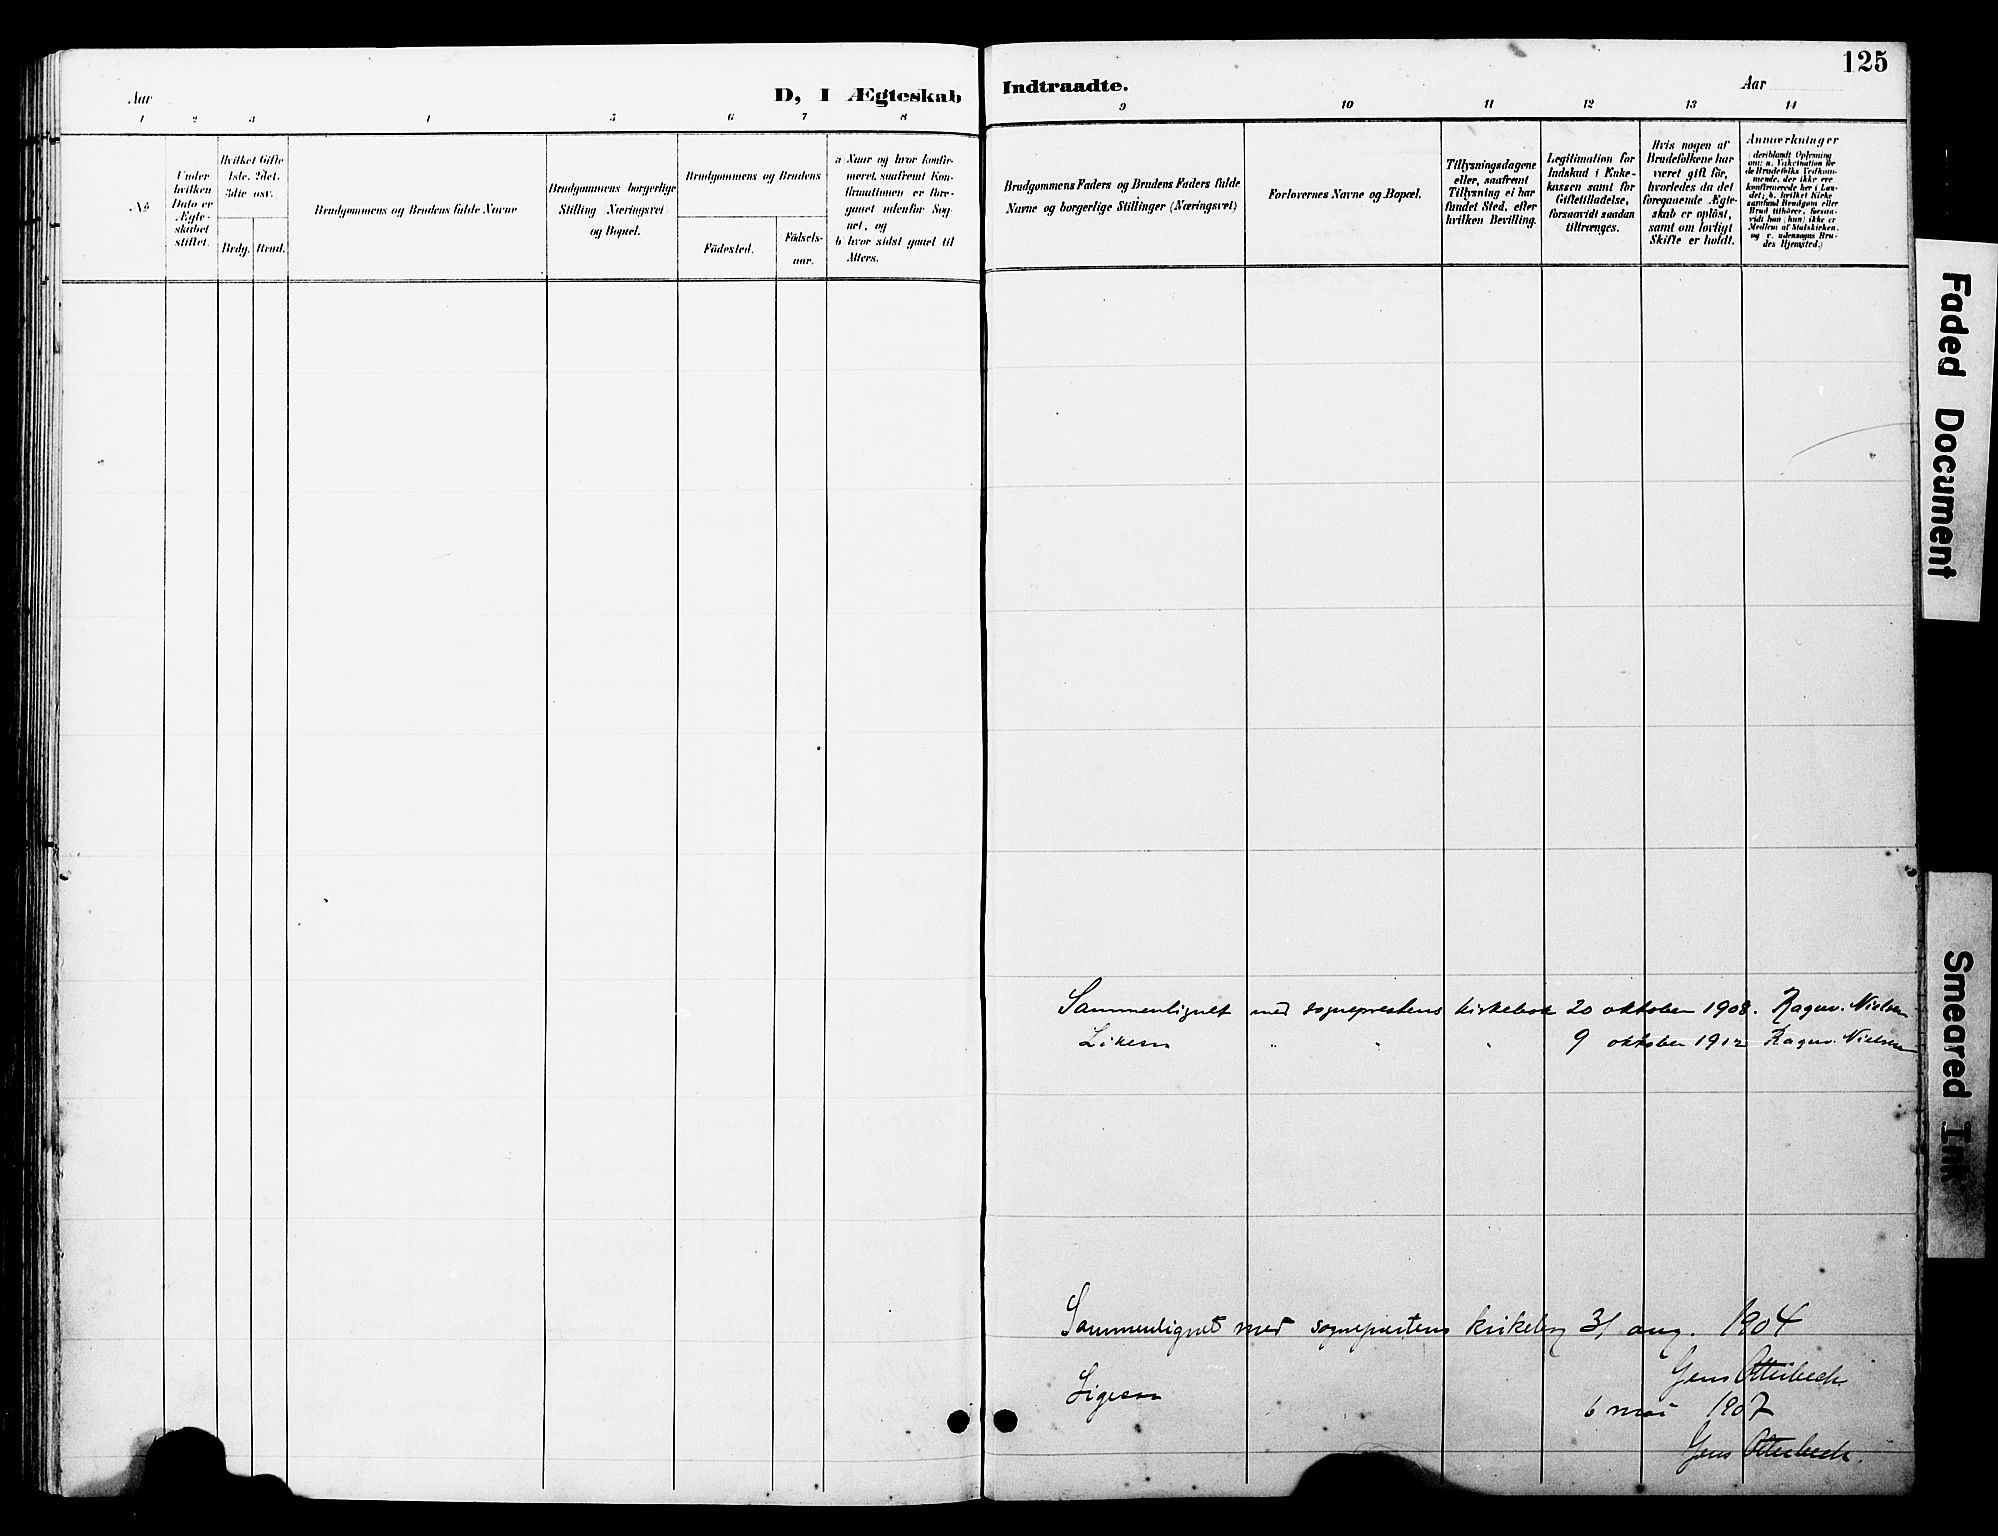 125
Aar
D, I Ægteskab
Indtraadte.
Aar
1 2 3 4 5 6 7 8
9 10 11 12 13 14
№
Under hvilken Dato er Ægteskabet stiftet.
Hvilket Gifte 1ste. 2det. 3die osv.
Brdg. Brud.
Brudgommens og Brudens fulde Navne
Brudgommens borgerlige Stilling (Næringsvei) og Bopæl.
Brudgommens og Brudens
Fødested.
Fødselsaar.
a Naar og hvor konfirmeret, saafremt Konfirmationen er foregaaet udenfor Sognet, og
b hvor sidst gaaet til Alters.
Brudgommens Faders og Brudens Faders fulde
Navne og borgerlige Stillinger (Næringsvei)
Forlovernes Navne og Bopæl.
Tillysningsdagene
eller, saafremt
Tillysning ei har
fundet Sted, efter
hvilken Bevilling.
Legitimation for
Indskud i Enkekassen samt for
Giftetilladelse,
forsaavidt saadan
tiltrænges.
Hvis nogen af
Brudefolkene har
været gift før,
hvorledes da det
foregaaende Ægteskab er opløst,
samt om lovligt
Skifte er holdt.
Anmærkninger
(deriblandt Oplysning
om: a. Vakcination for
de Brudefolks Vedkommende, der ikke ere
konfirmerede her i Landet; b. hvilket Kirkesamfund Brudgom eller
Brud tilhører, forsaavidt han (hun) ikke er
Medlem af Statskirken,
og c. udensogns Brudes Hjemsted.)
Sammenlignet med sogneprestens kirkebok 20 oktober 1908. Ragnv. Nielsen
Likesaa " " " 9 oktober 1912 Ragnv. Nielsen
Sammenlignet med sogneprestens kirkebog 31 aug. 1904
Jens Otterbech
Ligesaa
6 mai 1907
Jens Otterbech.
Faded Document
Smeared Ink